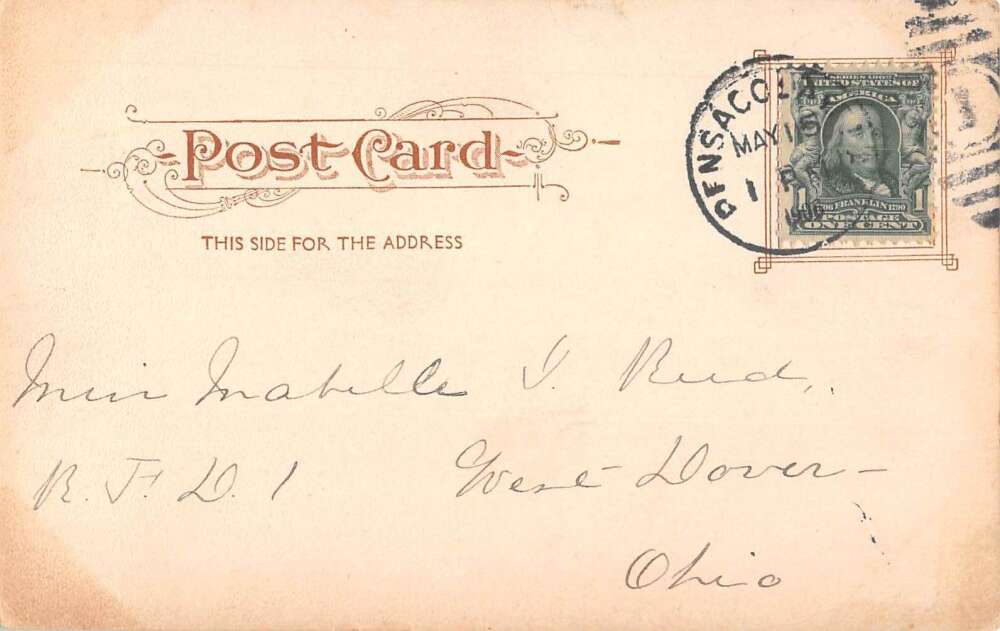 Post Card
THIS SIDE FOR THE ADDRESS
PENSACOLA
MAY 10
1
1906
SERIES 1902
THE UNITED STATES OF
AMERICA
1706 FRANKLIN 1790
1 POSTAGE 1
ONE CENT
Miss Mabelle I. Reed,
R. F. D. 1 West Dover -
Ohio